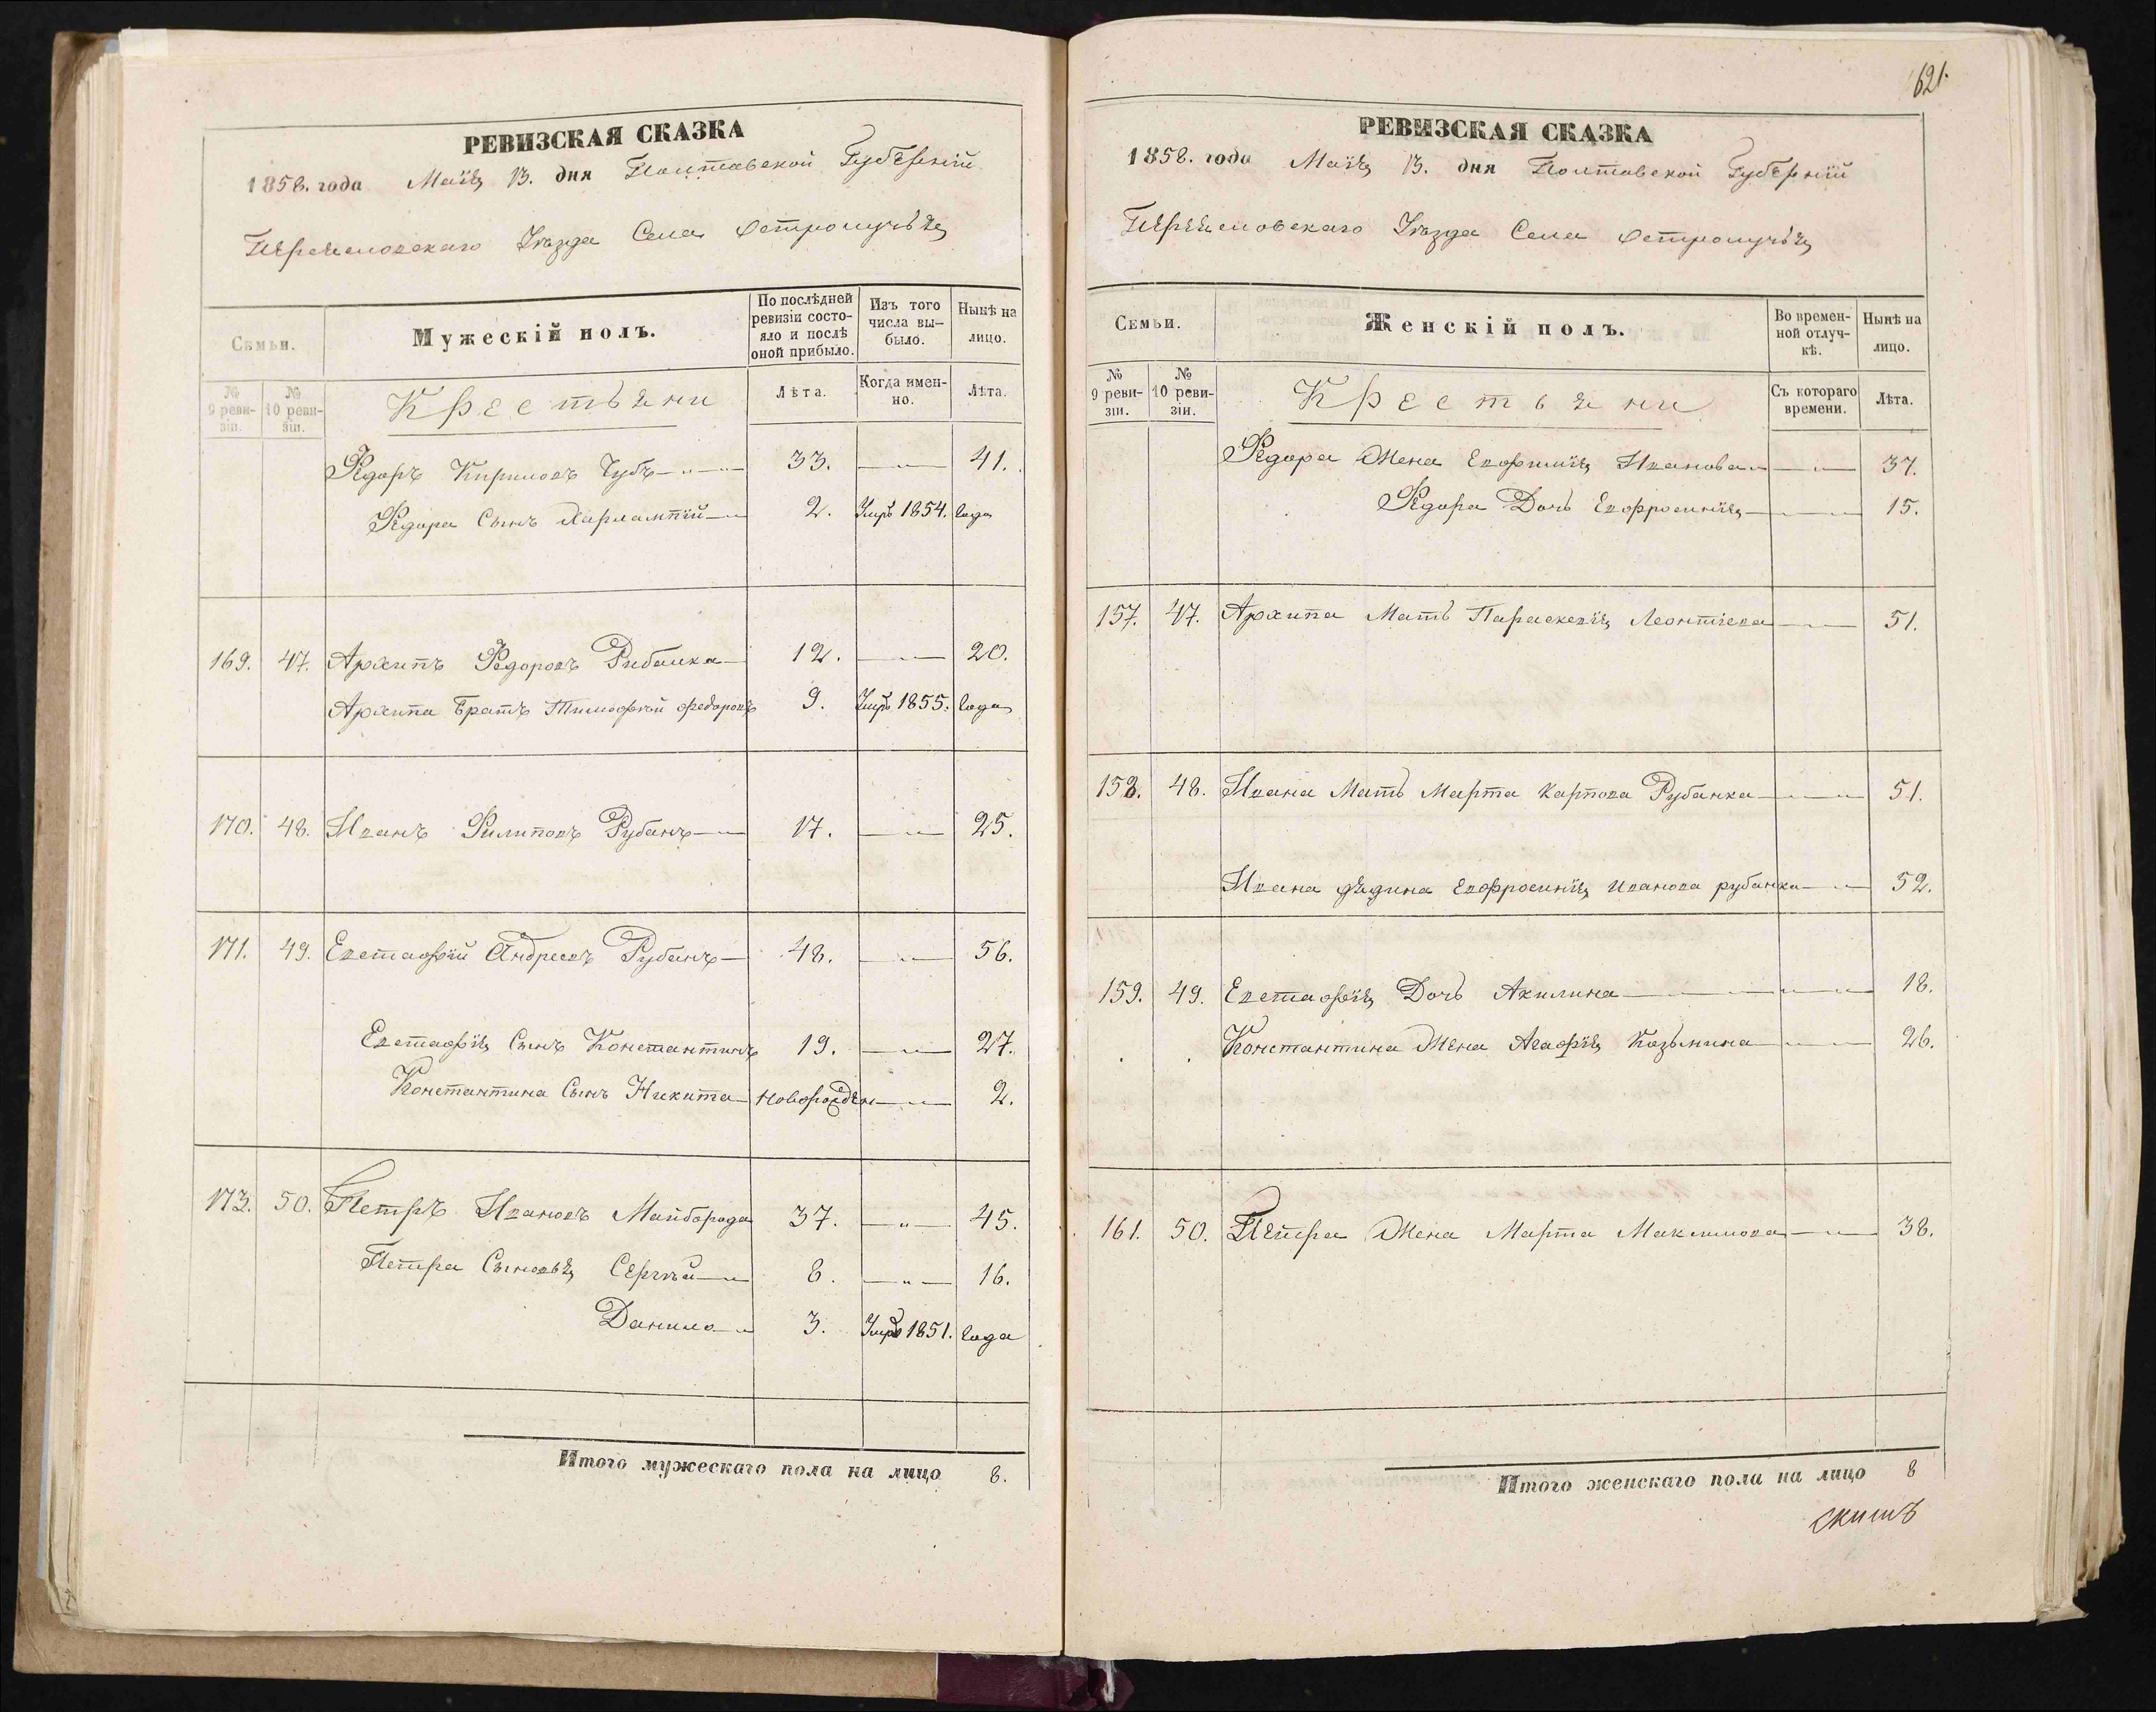 РЕВИЗСКАЯ СКАЗКА
1858. года Маія 13. дня Полтавской Губерніи
Переяславскаго Уѣзда Села
Семьи.
Мужескій полъ.
По послѣдней ревизіи состояло и послѣ оной прибыло.
Изъ того числа выбыло.
Нынѣ на лицо.
№ 9 ревизіи.
№ 10 ревизіи.
Крестьяни
Лѣта.
Когда именно.
Лѣта.
Ѳедоръ Кириловъ Чубъ 33. 41.
Ѳедора Сынъ Харлампій 2. Умръ 1854. года
169. 47. Архипъ Ѳедоровъ Рибалка 12. 20.
Архипа Братъ Тимофѣй Федоровъ 9. Умръ 1855. года
170. 48. Иванъ Филиповъ Рубанъ 17. 25.
171. 49. Евстафій Андреевъ Рубанъ 48. 56.
Евстафія Сынъ Константинъ 19. 27.
Константина Сынъ Никита новорожден 2.
173. 50. Петръ Ивановъ Майборода 37. 45.
Петра Сыновья Сергѣй 8. 16.
Данило 3. Умръ 1851. года
Итого мужескаго пола на лицо 8.
621.
РЕВИЗСКАЯ СКАЗКА
1858. года Маія 13. дня Полтавской Губерніи
Переяславскаго Уѣзда Села
Семьи.
Женскій полъ.
Во временной отлучкѣ.
Нынѣ на лицо.
№ 9 ревизіи.
№ 10 ревизіи.
Крестьяни
Съ котораго времени.
Лѣта.
Ѳедора Жена Евфимія Иванова 37.
Ѳедора Дочь Евфросинія 15.
157. 47. Архипа Мать Параскевія Леонтіева 51.
158. 48. Ивана Мать Марта Карпова Рубанка 51.
Ивана дядина Евфросинія Иванова рубанка 52.
159. 49. Евстафія Дочь Акилина 18.
Константина Жена Агафія Козьмина 26.
161. 50. Петра Жена Марта Максимова 38.
Итого женскаго пола на лицо 8